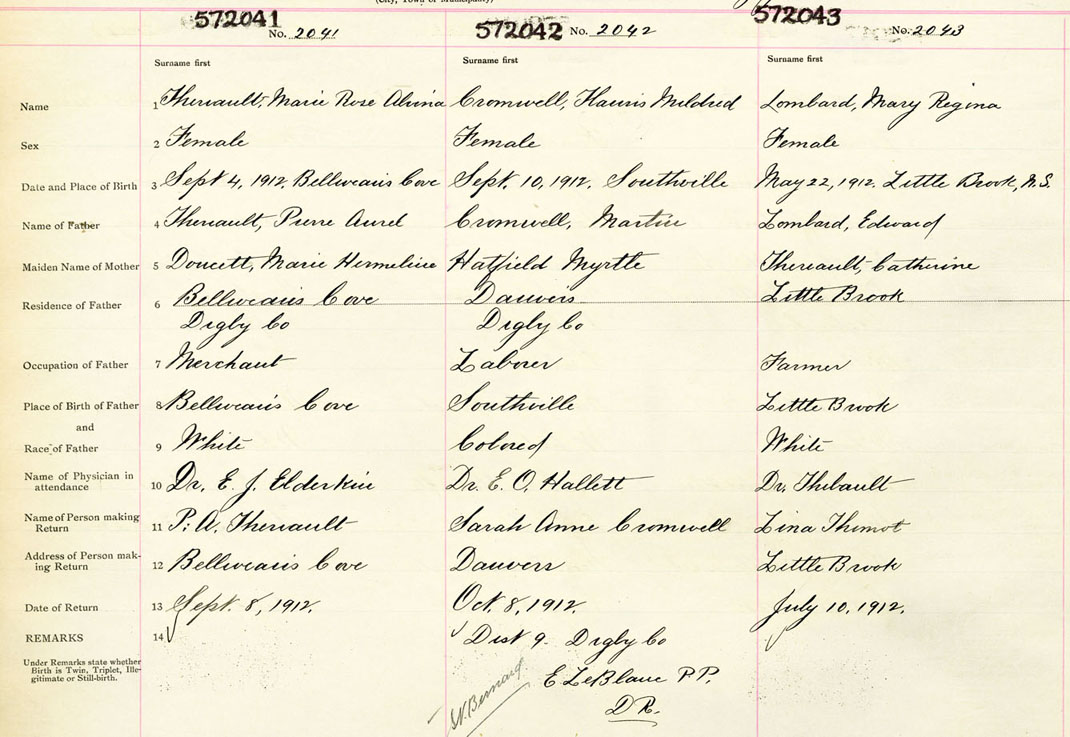 (City, Town or Municipality)
572041 No. 2041 572042 No. 2042 572043 No. 2043
Surname first Surname first Surname first
Name 1 Theriault, Marie Rose Alvina Cromwell, Harris Mildred Lombard, Mary Regina
Sex 2 Female Female Female
Date and Place of Birth 3 Sept 4, 1912. Belliveau's Cove Sept. 10, 1912. Southville May 22, 1912. Little Brook, N.S.
Name of Father 4 Theriault, Pierre Aurel Cromwell, Martin Lombard, Edward
Maiden Name of Mother 5 Doucett, Marie Hermeline Hatfield Myrtle Theriault, Catherine
Residence of Father 6 Belliveau's Cove Danvers Little Brook
Digby Co Digby Co
Occupation of Father 7 Merchant Laborer Farmer
Place of Birth of Father 8 Belliveau's Cove Southville Little Brook
and
Race of Father 9 White Colored White
Name of Physician in
attendance 10 Dr. E. J. Elderkin Dr. E. O. Hallett Dr. Thibault
Name of Person making
Return 11 P. A. Theriault Sarah Anne Cromwell Lina Thimot
Address of Person mak-
ing Return 12 Belliveau's Cove Danvers Little Brook
Date of Return 13 Sept. 8, 1912. Oct. 8, 1912. July 10, 1912.
REMARKS 14 Dist 9. Digby Co
Under Remarks state whether
Birth is Twin, Triplet, Ille-
gitimate or Still-birth.
E LeBlanc P.P.
D R.
St. Bernard